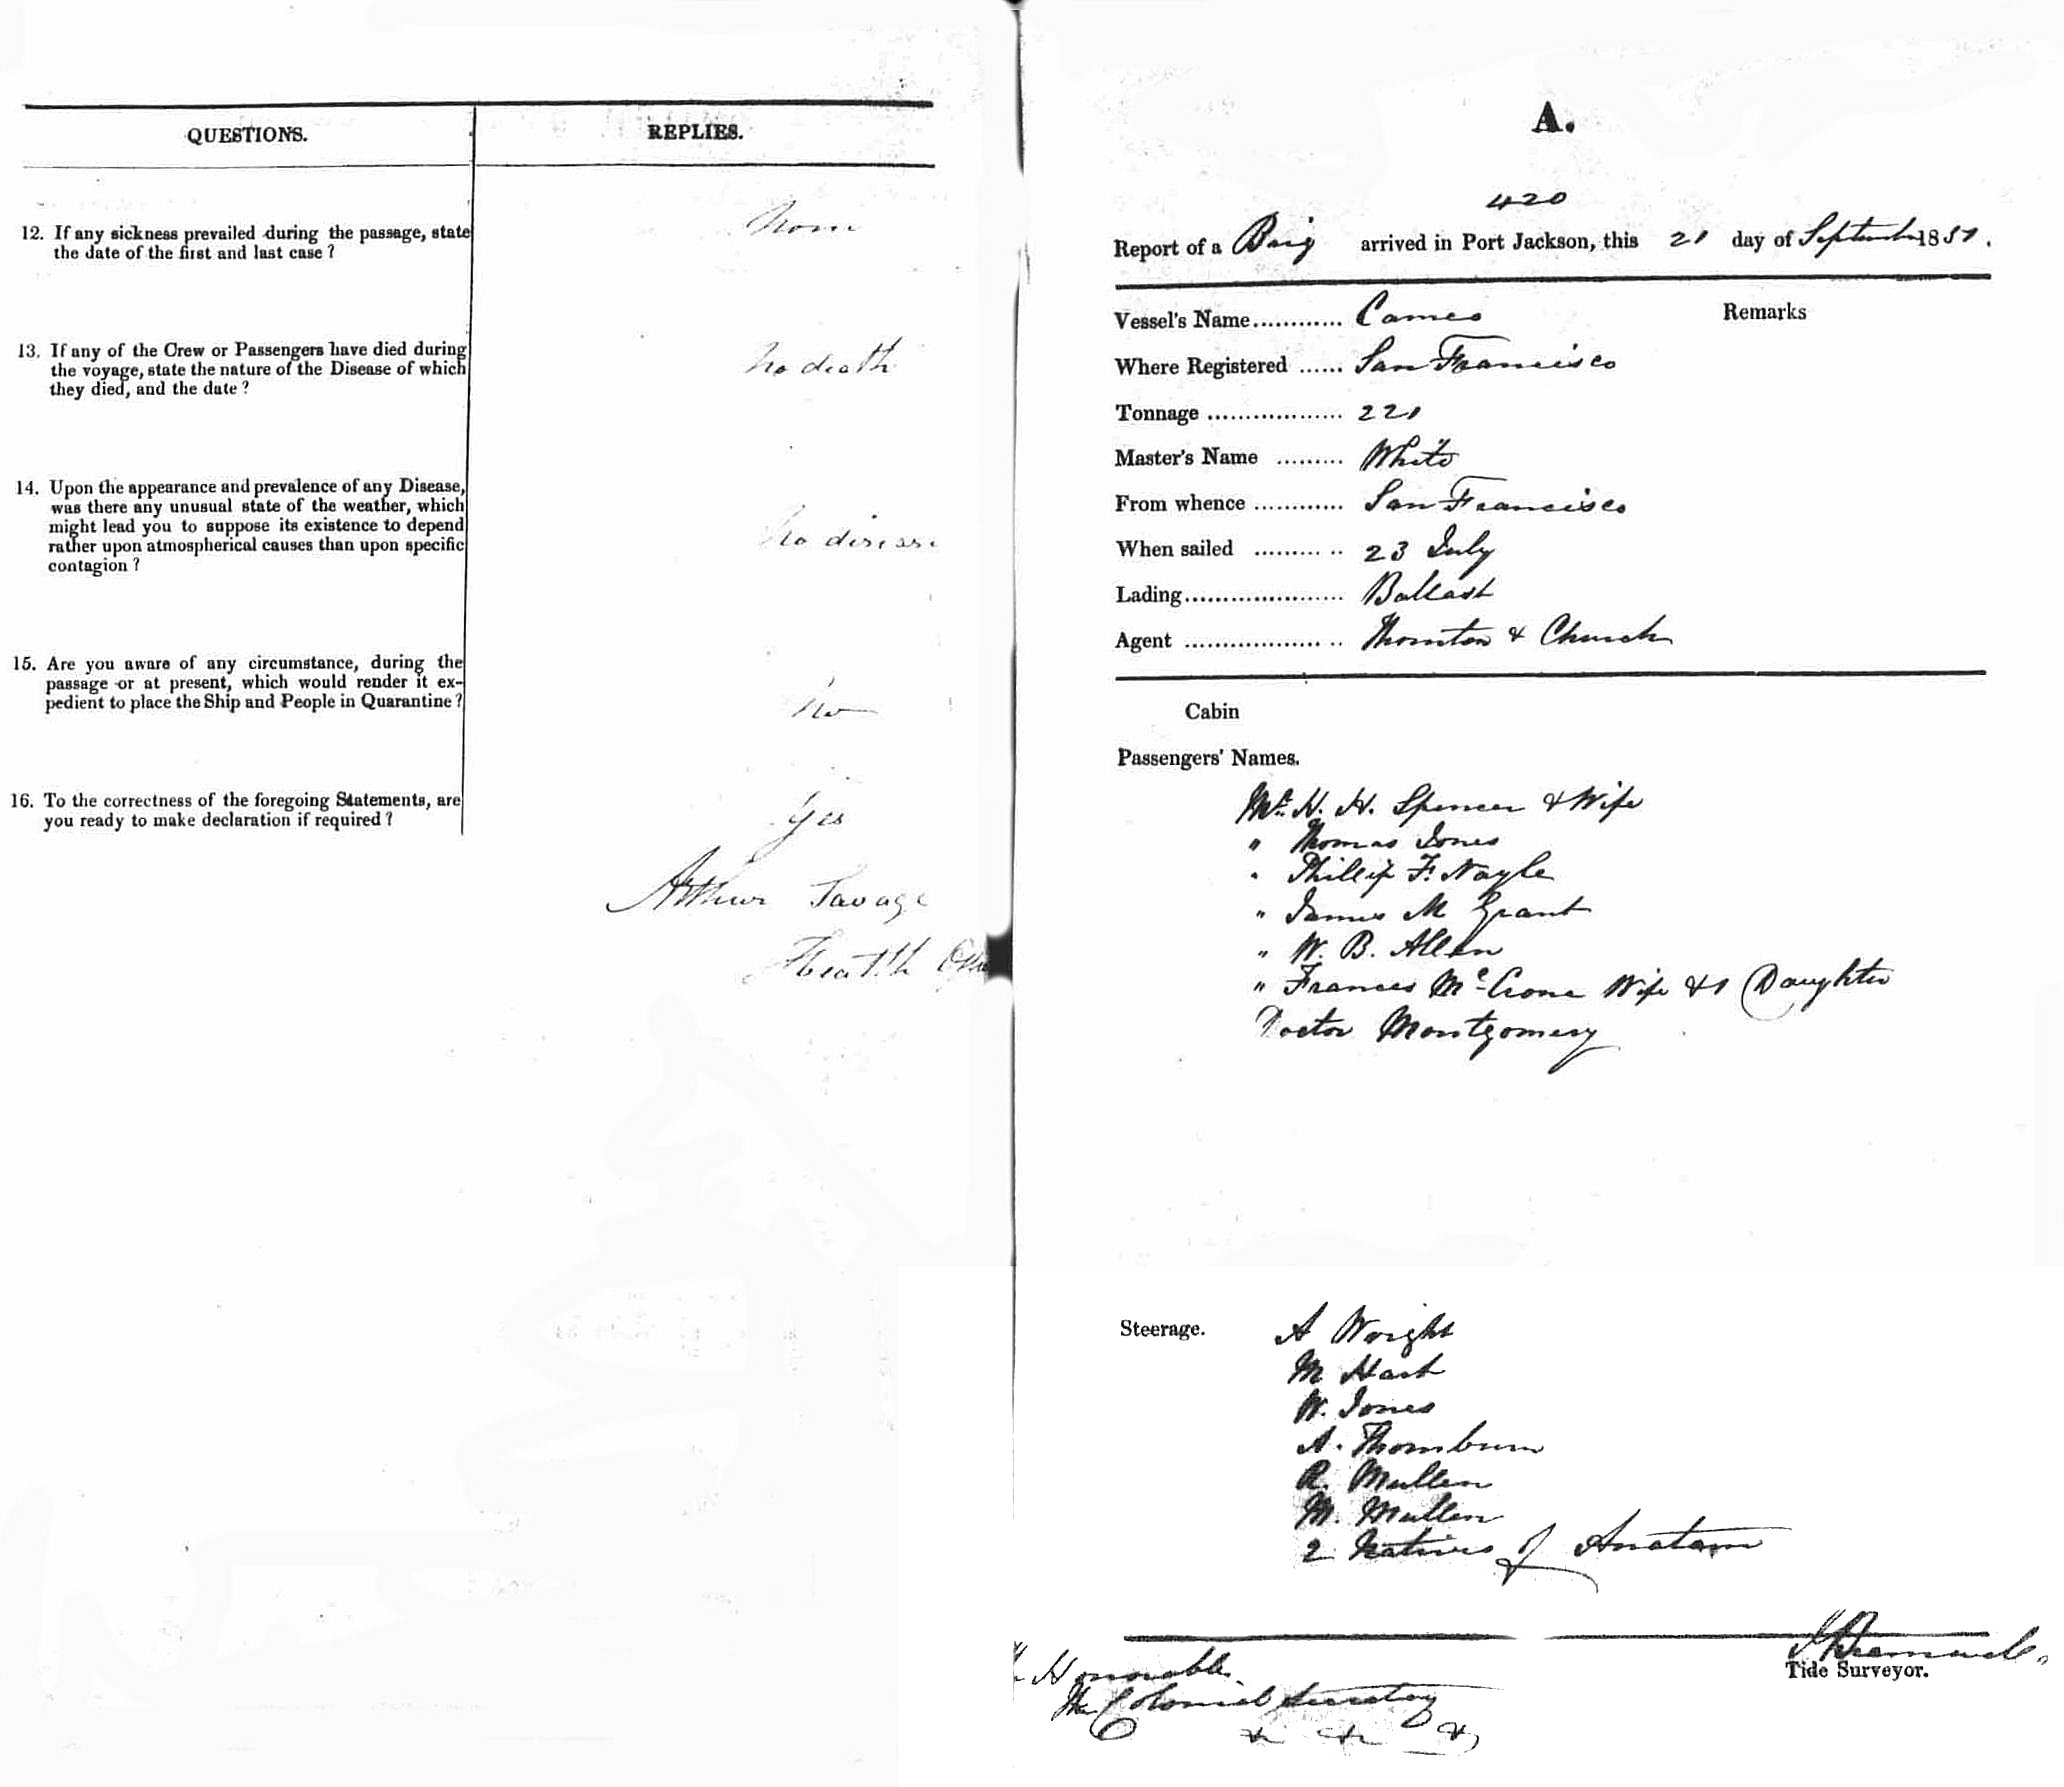 QUESTIONS.
REPLIES.
12. If any sickness prevailed during the passage, state
the date of the first and last case ?
None
13. If any of the Crew or Passengers have died during
the voyage, state the nature of the Disease of which
they died, and the date ?
No death
14. Upon the appearance and prevalence of any Disease,
was there any unusual state of the weather, which
might lead you to suppose its existence to depend
rather upon atmospherical causes than upon specific
contagion ?
No disease
15. Are you aware of any circumstance, during the
passage or at present, which would render it ex-
pedient to place the Ship and People in Quarantine ?
No
16. To the correctness of the foregoing Statements, are
you ready to make declaration if required ?
Yes
Arthur Savage
Health
A.
420
Report of a Brig arrived in Port Jackson, this 21 day of September 1851.
Vessel's Name............ Cameo
Remarks
Where Registered ...... San Francisco
Tonnage .................. 221
Master's Name ......... White
From whence ............ San Francisco
When sailed ......... .. 23 July
Lading..................... Ballast
Agent .................. .. Thornton & Church
Cabin
Passengers' Names.
Mr. H. H. Spencer & Wife
" Thomas Jones
" Phillip F. Nagle
" James M Grant
" W. B. Allen
" Frances McCrone Wife & 1 Daughter
Doctor Montgomery
Steerage.
A Wright
M Hart
W. Jones
A. Thornburn
R. Mullen
M. Mullen
2 Natives of Anatam
Tide Surveyor.
Honorable
The Colonial Secretary
& & &